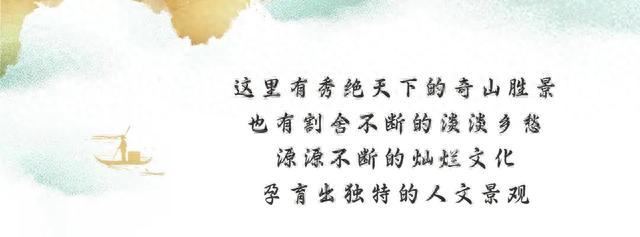 这里有秀绝天下的奇山胜景
也有割舍不断的淡淡乡愁
源源不断的灿烂文化
孕育出独特的人文景观